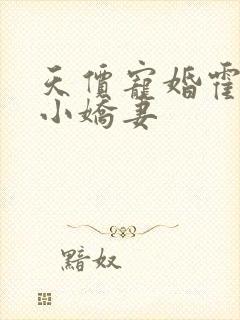 天價寵婚霍
小嬌妻
黯奴